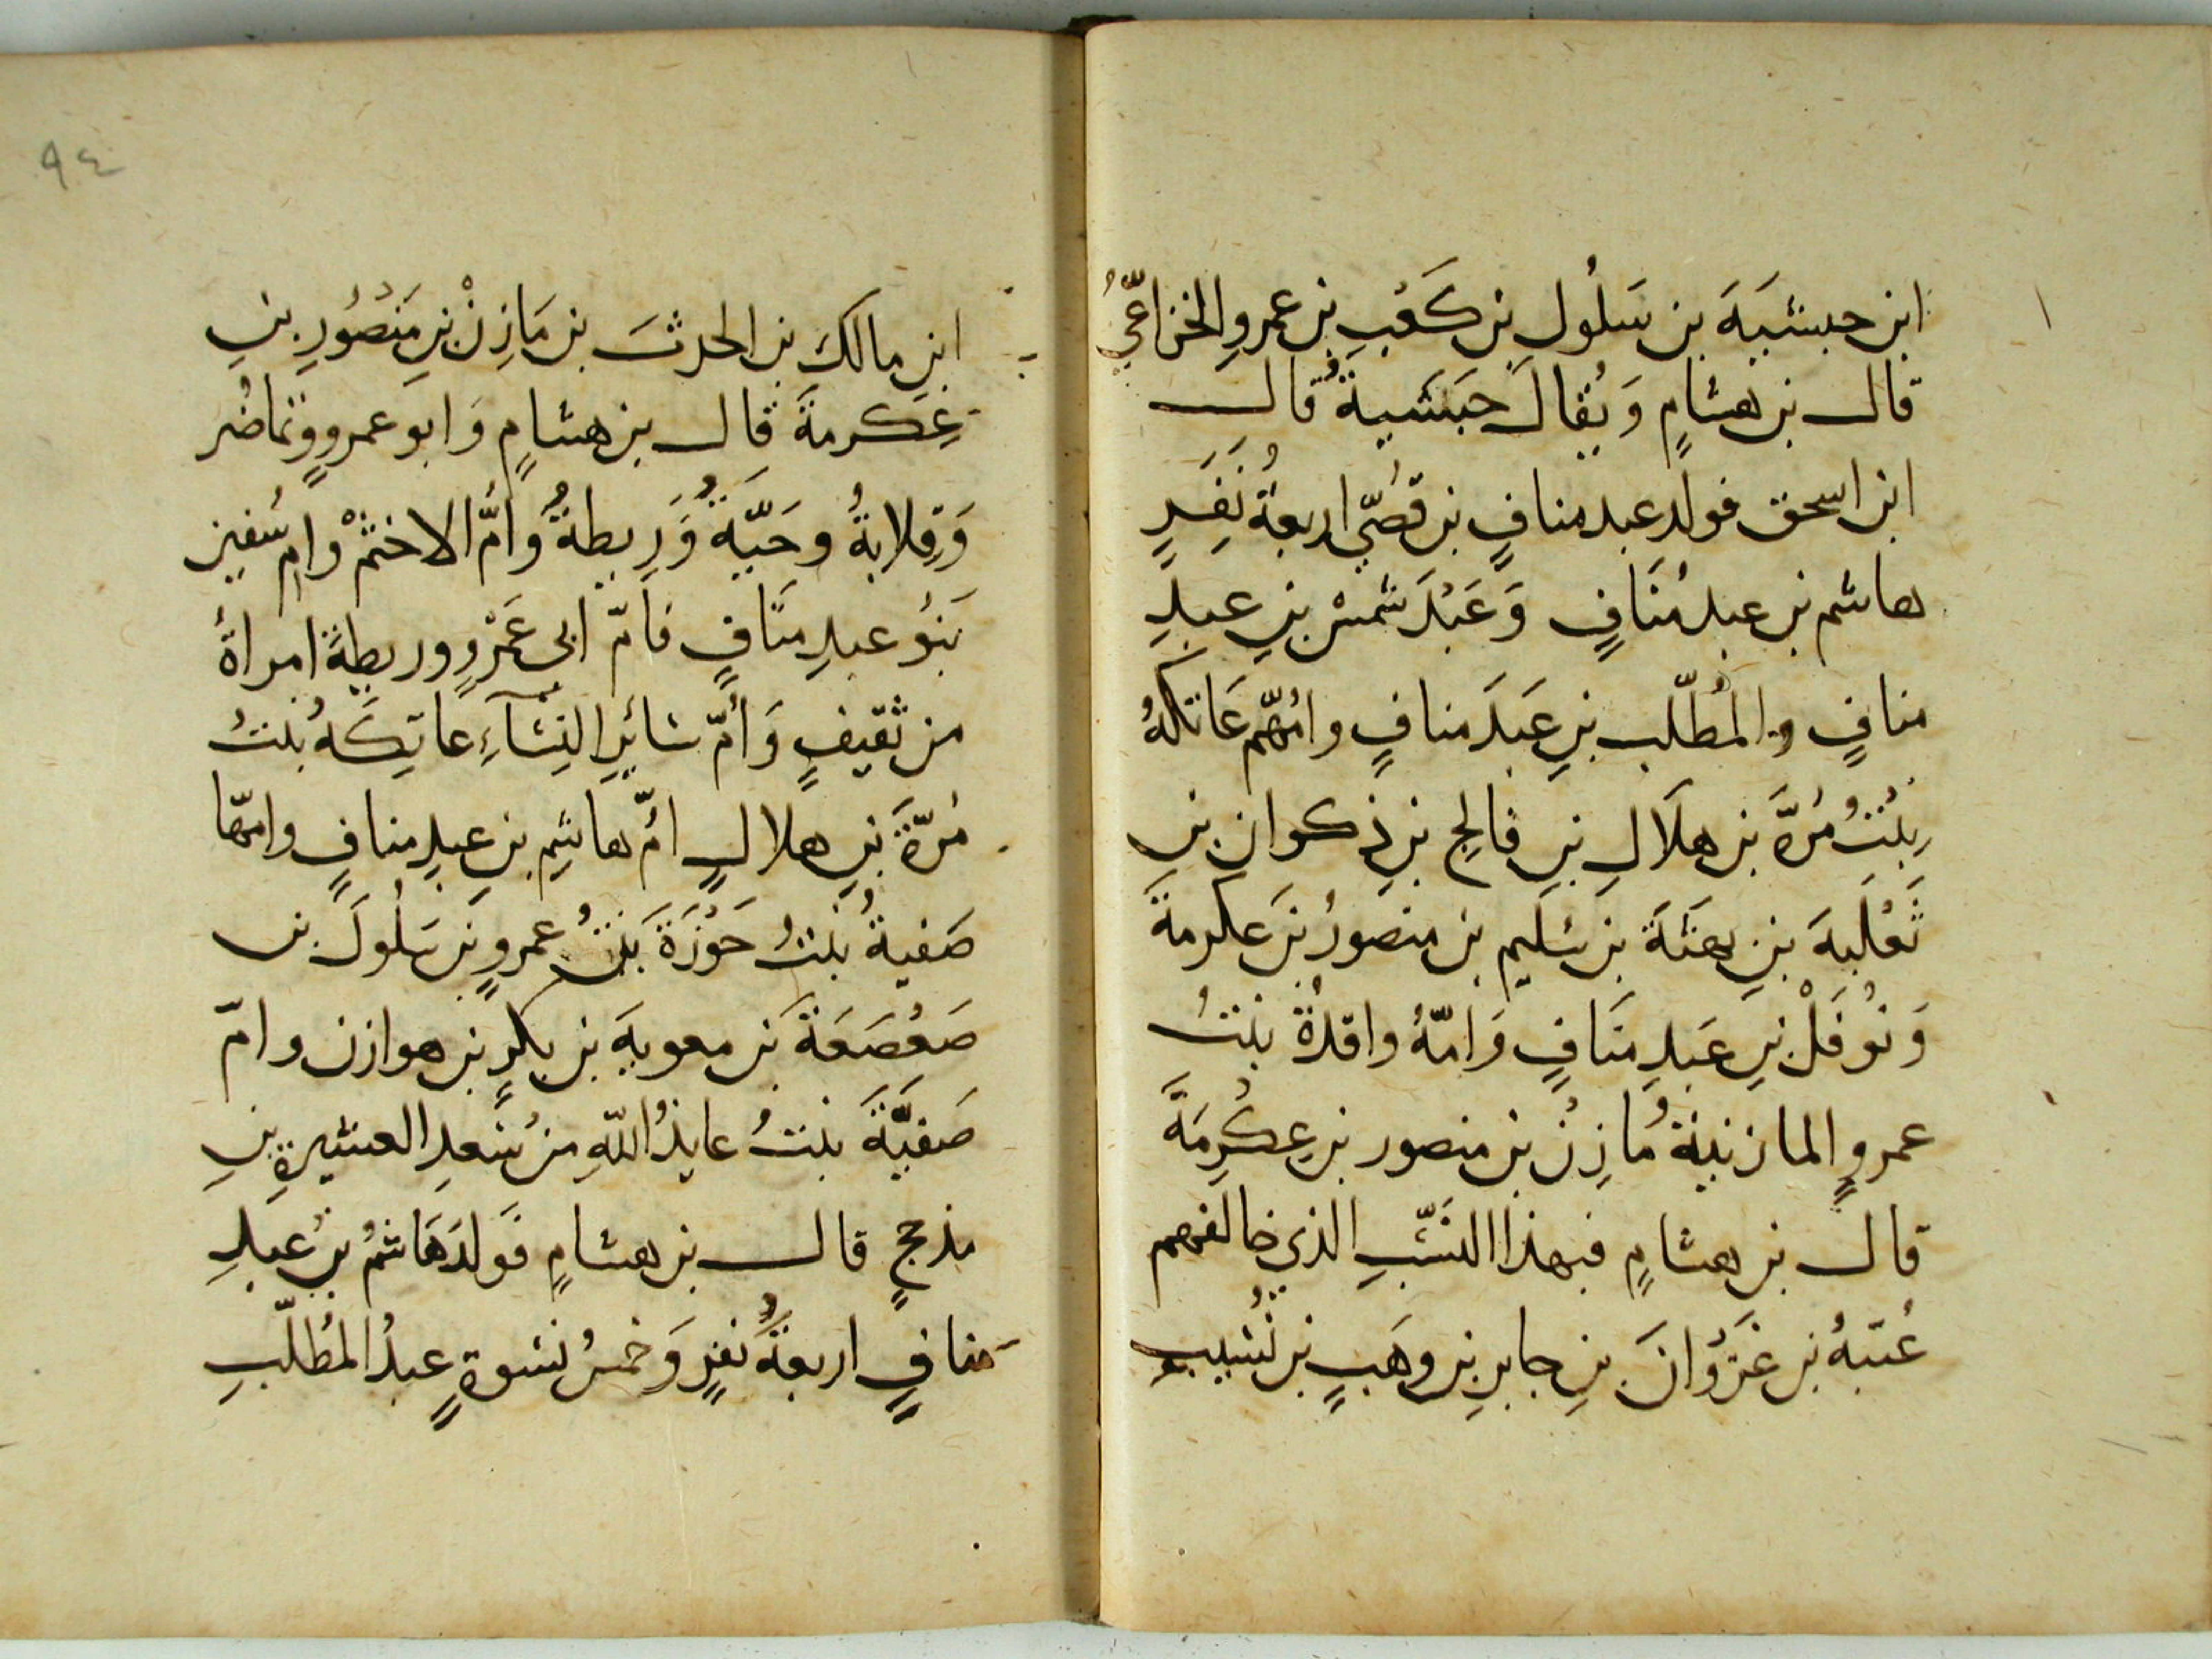 ابن حبشيَةَ بن سَلُول بن كَعْبِ بن عمرو الخزاعيُّ
قال بن هشامٍ وَيُقالَ حَبَشَيةُ قال
ابن اسحق فولد عبد منافٍ بن قصَيّ اربعةُ نَفَرٍ
هاشم بن عبد مُنَافٍ وَعَبْدَ شمسْ بنِ عبدِ
منافٍ والمُطّلب بنِ عَبدَ منافٍ وامُّهم عَاتكةُ
بِنْتُ مُرَّةَ بن هلَالِ بنِ فالج بنِ ذكوانِ بنِ
ثَعْلَبةَ بنِ بهثَةَ بن سُليم بن منصورُ بنَ عكرمةَ
وَنُوفَلْ بنِ عَبدِ منَافٍ وَامّهُ واقدةُ بنتُ
عمروٍ المازنيةُ مَازِنُ بن منصور بنِ عِكْرِمَةَ
قال بن هشامٍ فبهذا النسَّبِ الذي خالفهم
عُتبةُ بن غَزْوَانَ بنِ جابرِ بنِ وهَبٍ بن نُسَيبِ
٩٤
ابنِ مالكَ بن الحرثَ بن مَازِنْ بنِ مَنْصُورِ بنِ
عِكرمةَ قال بن هشامٍ وَابو عمروٍ وتماضُر
وَقِلابةُ وحَيّةُ وَرِيطةُ وأمَّ الاخثمْ وام سُفين
بَنُو عبدِ منَافٍ فامّ ابى عَمْروٍ وريطةَ امراةُ
من ثقيفٍ وَأمّ سَائرِ النِسَآءِ عاتِكَةُ بنتُ
مُرّةَ بنِ هلالٍ امّ هاشِمِ بن عبدِ منافٍ وامّها
صَفيةُ بنتُ حَوْزَةَ بَنتُ عمروٍ بن سَلُولَ بن
صَعْصَعَةَ بَن معويةَ بن بكرٍ بن هوازن وامّ
صَفيَّةَ بنتُ عايذُ اللهِ من سَعدِ العشيرةِ بنِ
مذحجٍ قال بن هشامٍ فَولدَ هَاشمُ بنُ عبدِ
منافٍ اربعةُ نفرٍ وَخمسُ نسوةٍ عبدُ المُطّلّبِ